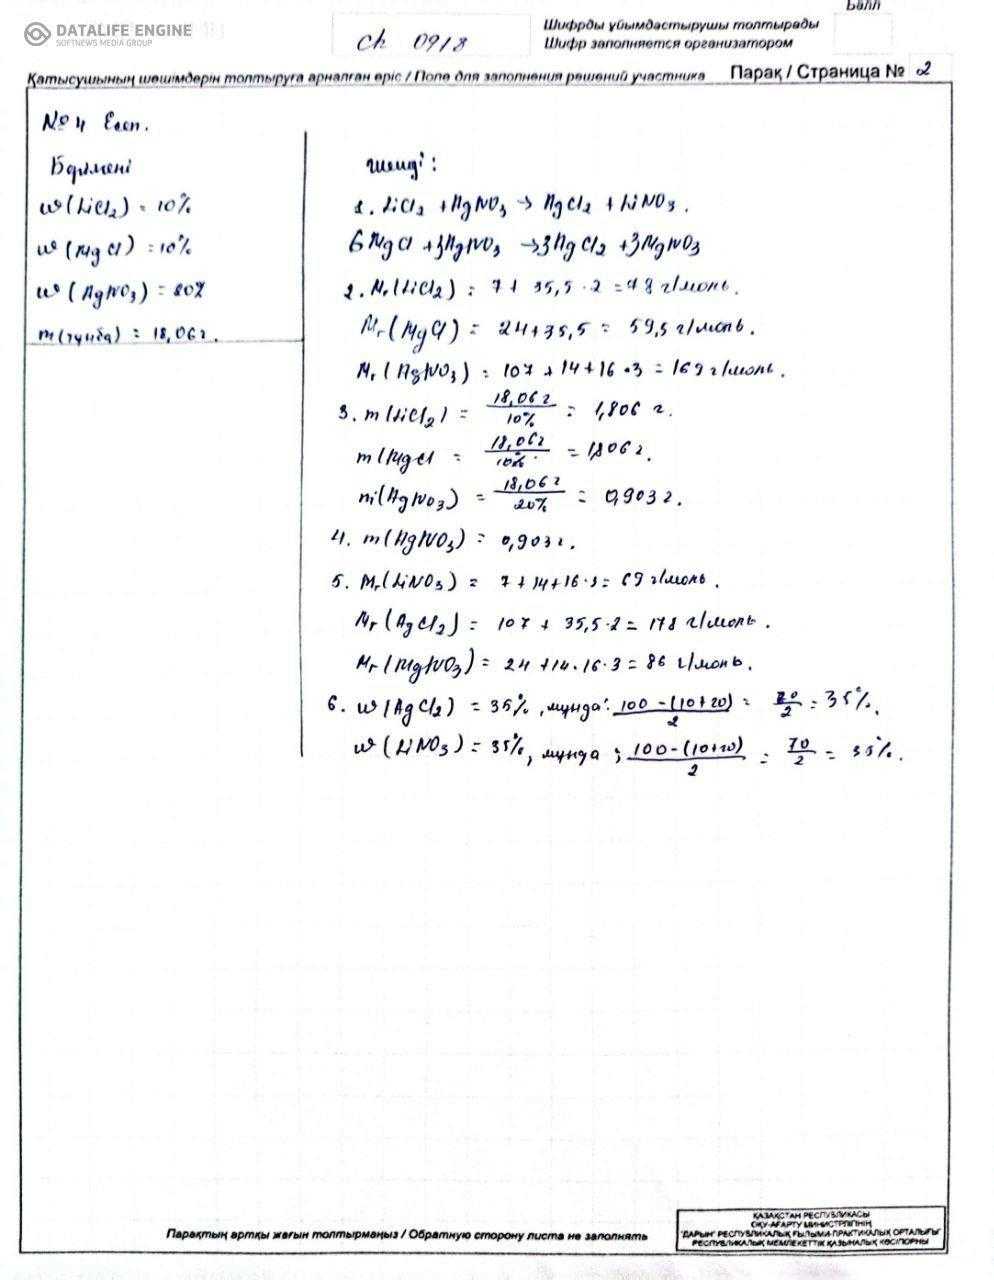 Балл
DATALIFE ENGINE
SOFTNEWS MEDIA GROUP
ch 0918
Шифрды ұйымдастырушы толтырады
Шифр заполняется организатором
Қатысушының шешімдерін толтыруға арналған өріс / Поле для заполнения решений участника
Парақ / Страница № 2
№ 4 Есеп.
Берілгені
w(LiCl₂) = 10%
w(MgCl) = 10%
w(AgNO₃) = 20%
m(тұнба) = 18,06 г.
Шешуі:
1. LiCl₂ + AgNO₃ → AgCl₂ + LiNO₃.
6MgCl + 3AgNO₃ → 3AgCl₂ + 3MgNO₃
2. Mr(LiCl₂) = 7 + 35,5 · 2 = 78 г/моль.
Mr(MgCl) = 24 + 35,5 = 59,5 г/моль.
Mr(AgNO₃) = 107 + 14 + 16 · 3 = 169 г/моль.
3. m(LiCl₂) = 18,06 г / 10% = 1,806 г.
m(MgCl = 18,06 г / 10% = 1,806 г.
m(AgNO₃) = 18,06 г / 20% = 0,903 г.
4. m(AgNO₃) = 0,903 г.
5. Mr(LiNO₃) = 7 + 14 + 16 · 3 = 69 г/моль.
Mr(AgCl₂) = 107 + 35,5 · 2 = 178 г/моль.
Mr(MgNO₃) = 24 + 14 · 16 · 3 = 86 г/моль.
6. w(AgCl₂) = 35%, мұнда: 100 - (10+20) / 2 = 70 / 2 = 35%.
w(LiNO₃) = 35%, мұнда ; 100 - (10+20) / 2 = 70 / 2 = 35%.
Парақтың артқы жағын толтырмаңыз / Обратную сторону листа не заполнять
ҚАЗАҚСТАН РЕСПУБЛИКАСЫ
ОҚУ-АҒАРТУ МИНИСТРЛІГІНІҢ
"ДАРЫН" РЕСПУБЛИКАЛЫҚ ҒЫЛЫМИ-ПРАКТИКАЛЫҚ ОРТАЛЫҒЫ"
РЕСПУБЛИКАЛЫҚ МЕМЛЕКЕТТІК ҚАЗЫНАЛЫҚ КӘСІПОРНЫ